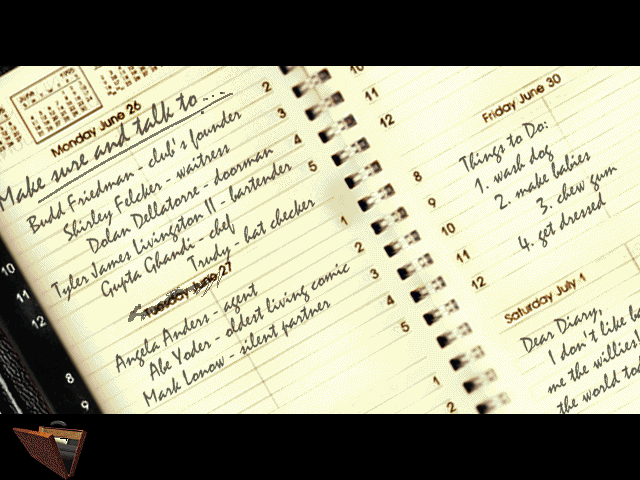 June 1995
Monday June 26
Make sure and talk to...
Budd Friedman - club's founder
Shirley Felcker - waitress
Dolan Dellatorre - doorman
Tyler James Livingston II - bartender
Gupta Ghandi - chef
Trudy - hat checker
2
3
4
5
10
11
12
Tuesday June 27
Angela Anders - agent
Abe Yoder - oldest living comic
Mark Lonow - silent partner
1
2
3
4
5
8
9
1
2
10
11
12
Friday June 30
Things to Do:
1. wash dog
2. make babies
3. chew gum
4. get dressed
8
9
10
11
12
Saturday July 1
Dear Diary,
I don't like
me the willies!
the world